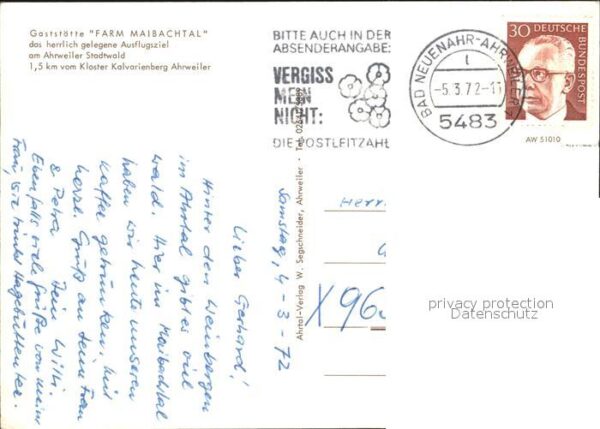 Gaststätte "FARM MAIBACHTAL"
das herrlich gelegene Ausflugsziel
am Ahrweiler Stadtwald
1,5 km vom Kloster Kalvarienberg Ahrweiler
BITTE AUCH IN DER
ABSENDERANGABE:
VERGISS
MEIN
NICHT:
DIE POSTLEITZAHL
BAD NEUENAHR-AHRWEILER
l
-5.3.72-1
5483
30 DEUTSCHE
BUNDESPOST
AW 51010
Samstag, 4-3-72
Lieber Gerhard!
Hinter den Weinbergen
im Ahrtal gibt es viel
Wald. Hier im Maibachtal
haben wir heute unseren
Kaffee getrunken. Mit
herzl. Gruß an deine Frau
& Petra Dein Willi.
Ebenfalls viele Grüße von meiner
Frau, sie trinkt Hagebuttentee.
Ahrtal-Verlag W. Segschneider, Ahrweiler · Tel.
Herr
X 96
privacy protection
Datenschutz